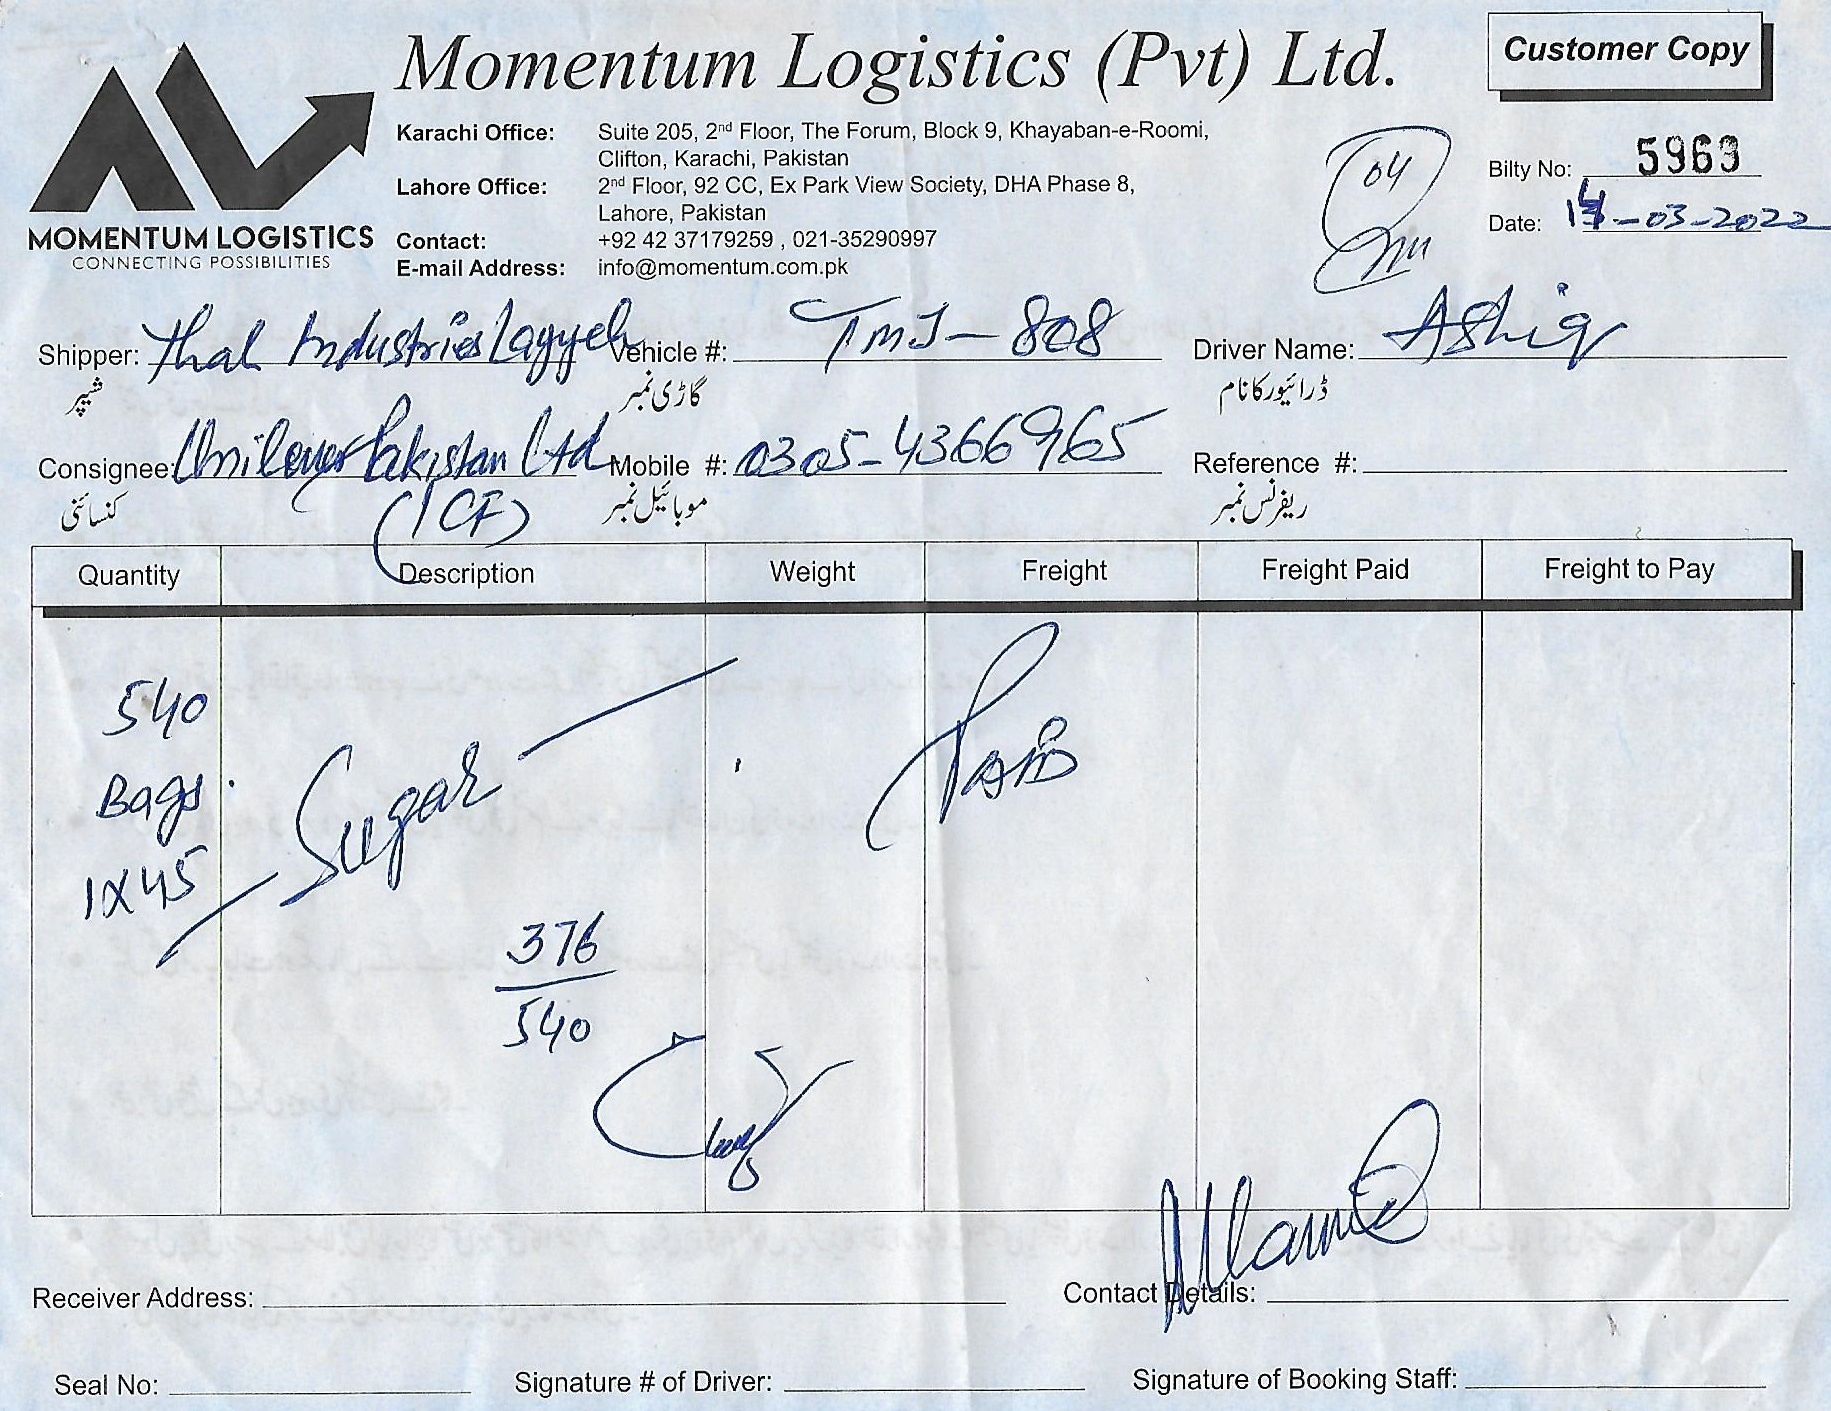 Momentum Logistics (Pvt) Ltd.
Customer Copy
MOMENTUM LOGISTICS
CONNECTING POSSIBILITIES
Karachi Office: Suite 205, 2nd Floor, The Forum, Block 9, Khayaban-e-Roomi,
Clifton, Karachi, Pakistan
Lahore Office: 2nd Floor, 92 CC, Ex Park View Society, DHA Phase 8,
Lahore, Pakistan
Contact: +92 42 37179259 , 021-35290997
E-mail Address: info@momentum.com.pk
04
Bilty No: 5969
Date: 14-03-2022
Shipper: Thal Industries Layyah Vehicle #: TMJ-808 Driver Name: AShiq
شیپر گاڑی نمبر ڈرائیور کا نام
Consignee: Unilever Pakistan Ltd Mobile #: 0305-4366965 Reference #:
(ICF)
کنسائنی موبائیل نمبر ریفرنس نمبر
Quantity Description Weight Freight Freight Paid Freight to Pay
540
Bags
1X45
Sugar
PAID
376
540
Receiver Address: Contact Details:
Seal No: Signature # of Driver: Signature of Booking Staff: